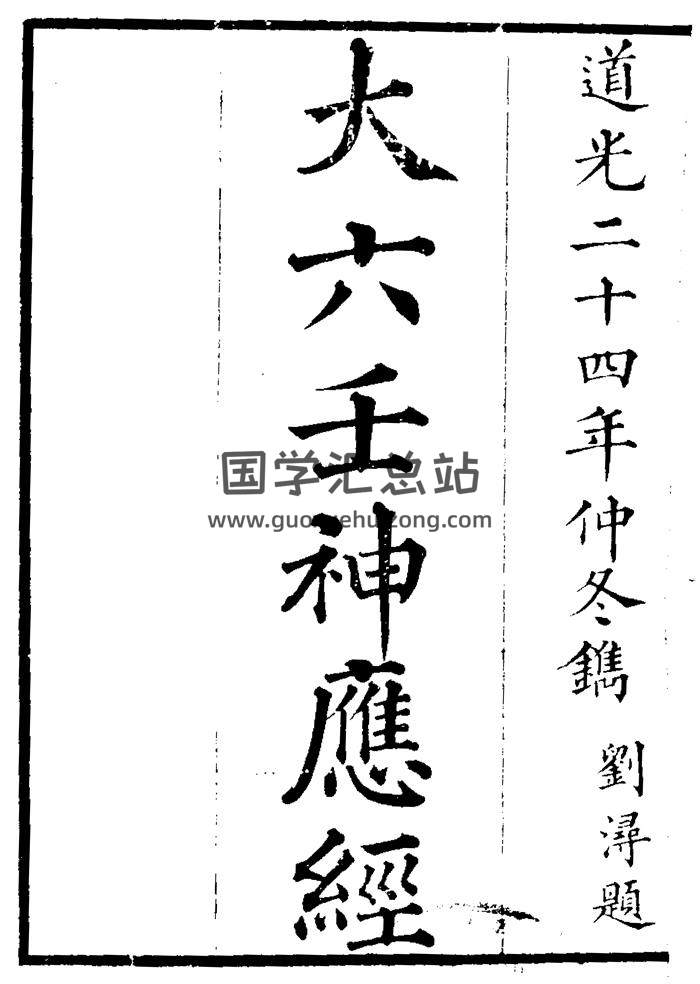 道光二十四年仲冬鐫 劉潯題
大六壬神應經
国学汇总站
www.guoxuehuizong.com